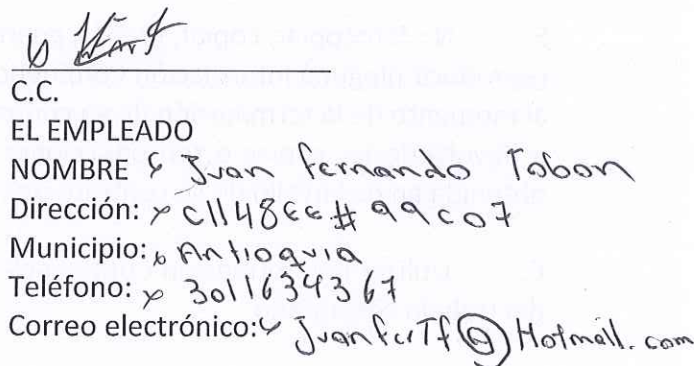 C.C.
EL EMPLEADO
NOMBRE Juan Fernando Tobon
Dirección: Cll 48EE # 99C07
Municipio: Antioquia
Teléfono: 3011634367
Correo electrónico: JuanferTf@Hotmail.com